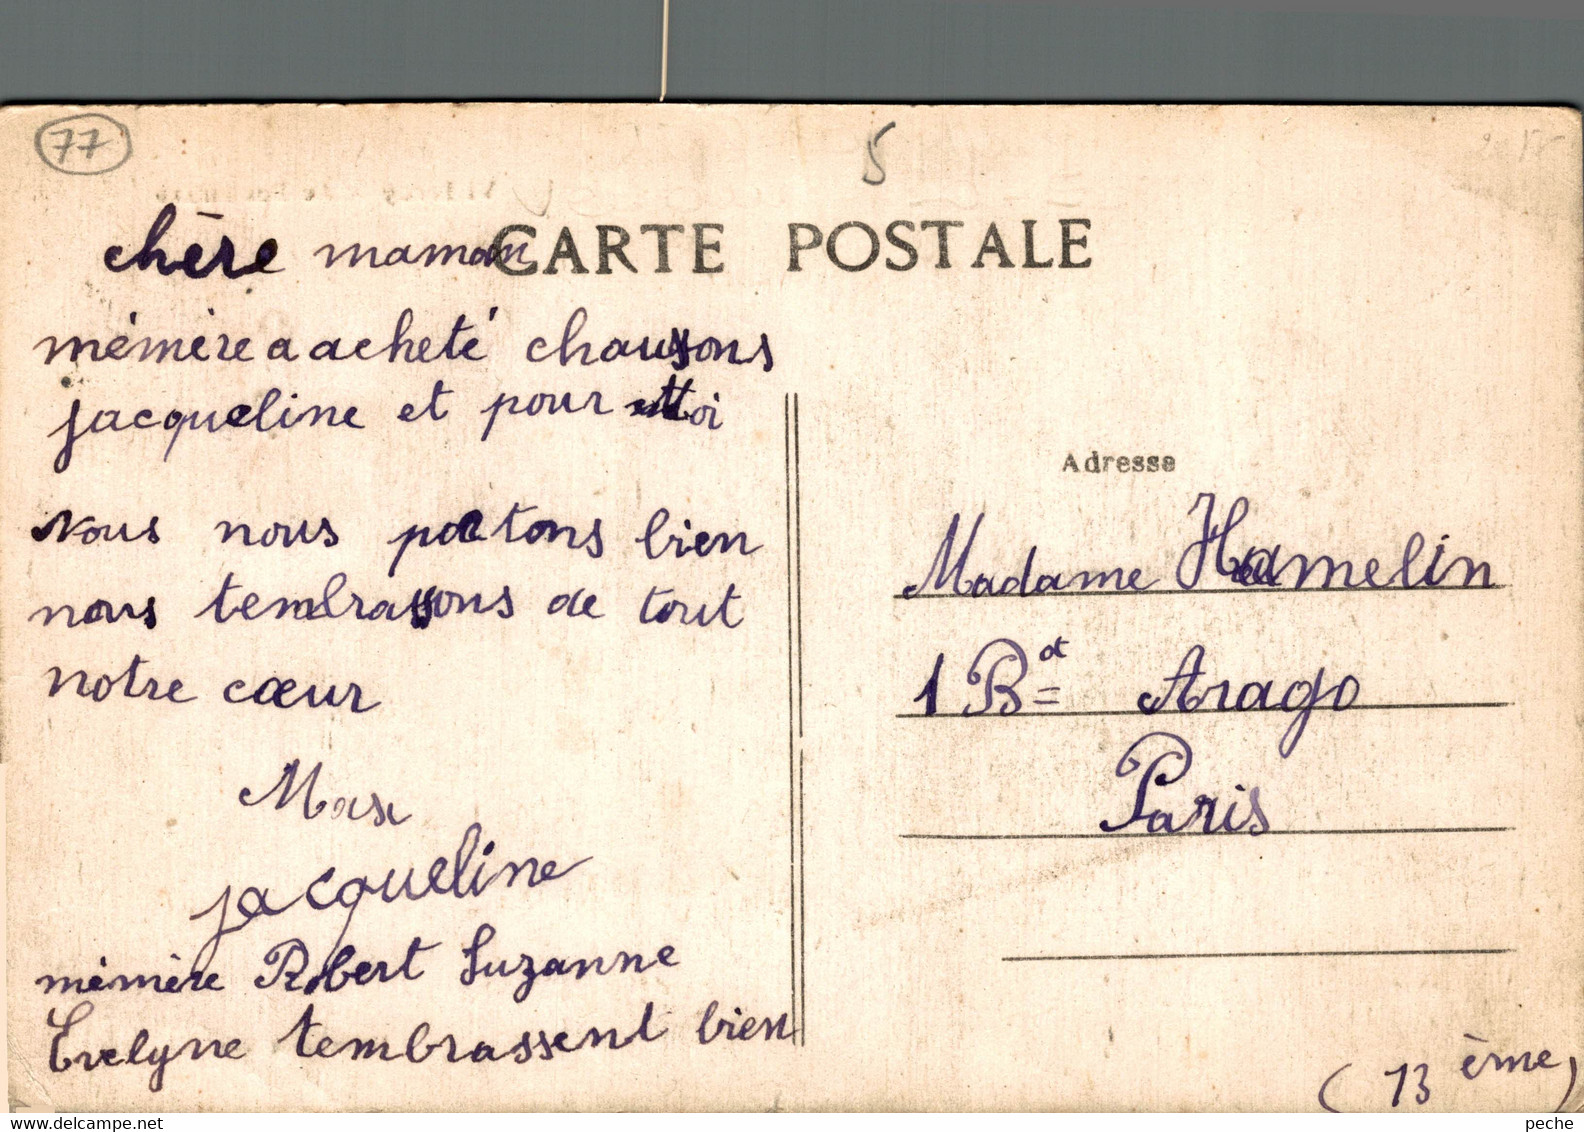 77
5
CARTE POSTALE
chère maman
mémère a acheté chaussons
jacqueline et pour Moi
Nous nous portons bien
nous tembrassons de tout
notre cœur
Max
jacqueline
mémère Robert Suzanne
Evelyne tembrassent bien
Adresse
Madame Hamelin
1 Bd= Arago
Paris
(13 ème)
peche